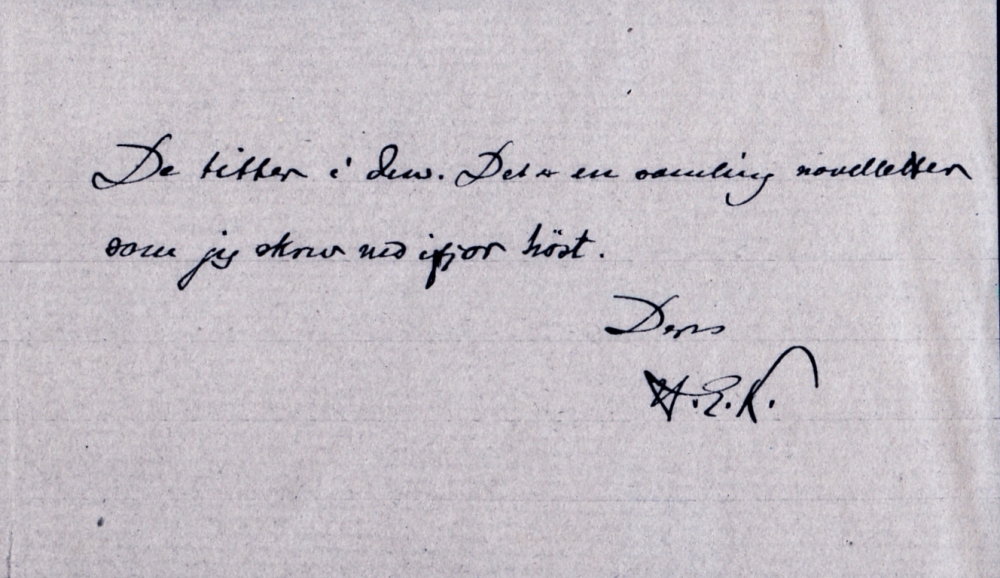 De titter i den. Det er en samling novelletter
som jeg skrev ned ifjor höst.
Deres
H.E.K.